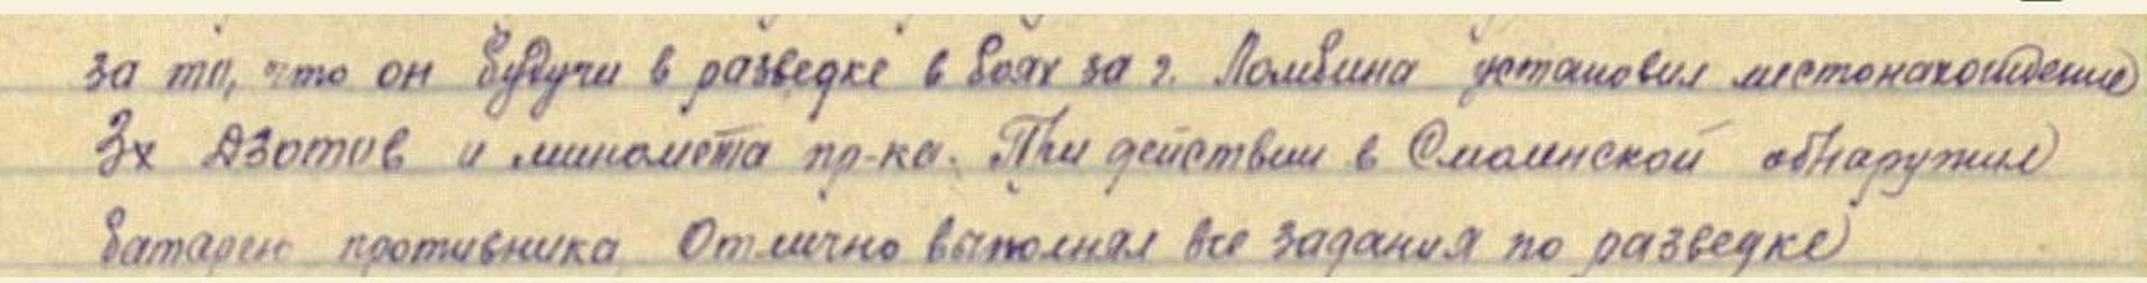 за то, что он будучи в разведке в боях за г. Ломбина установил местонахождение
3х Дзотов и миномёта пр-ка. При действии в Смоленской обнаружил
батарею противника Отлично выполнял все задания по разведке